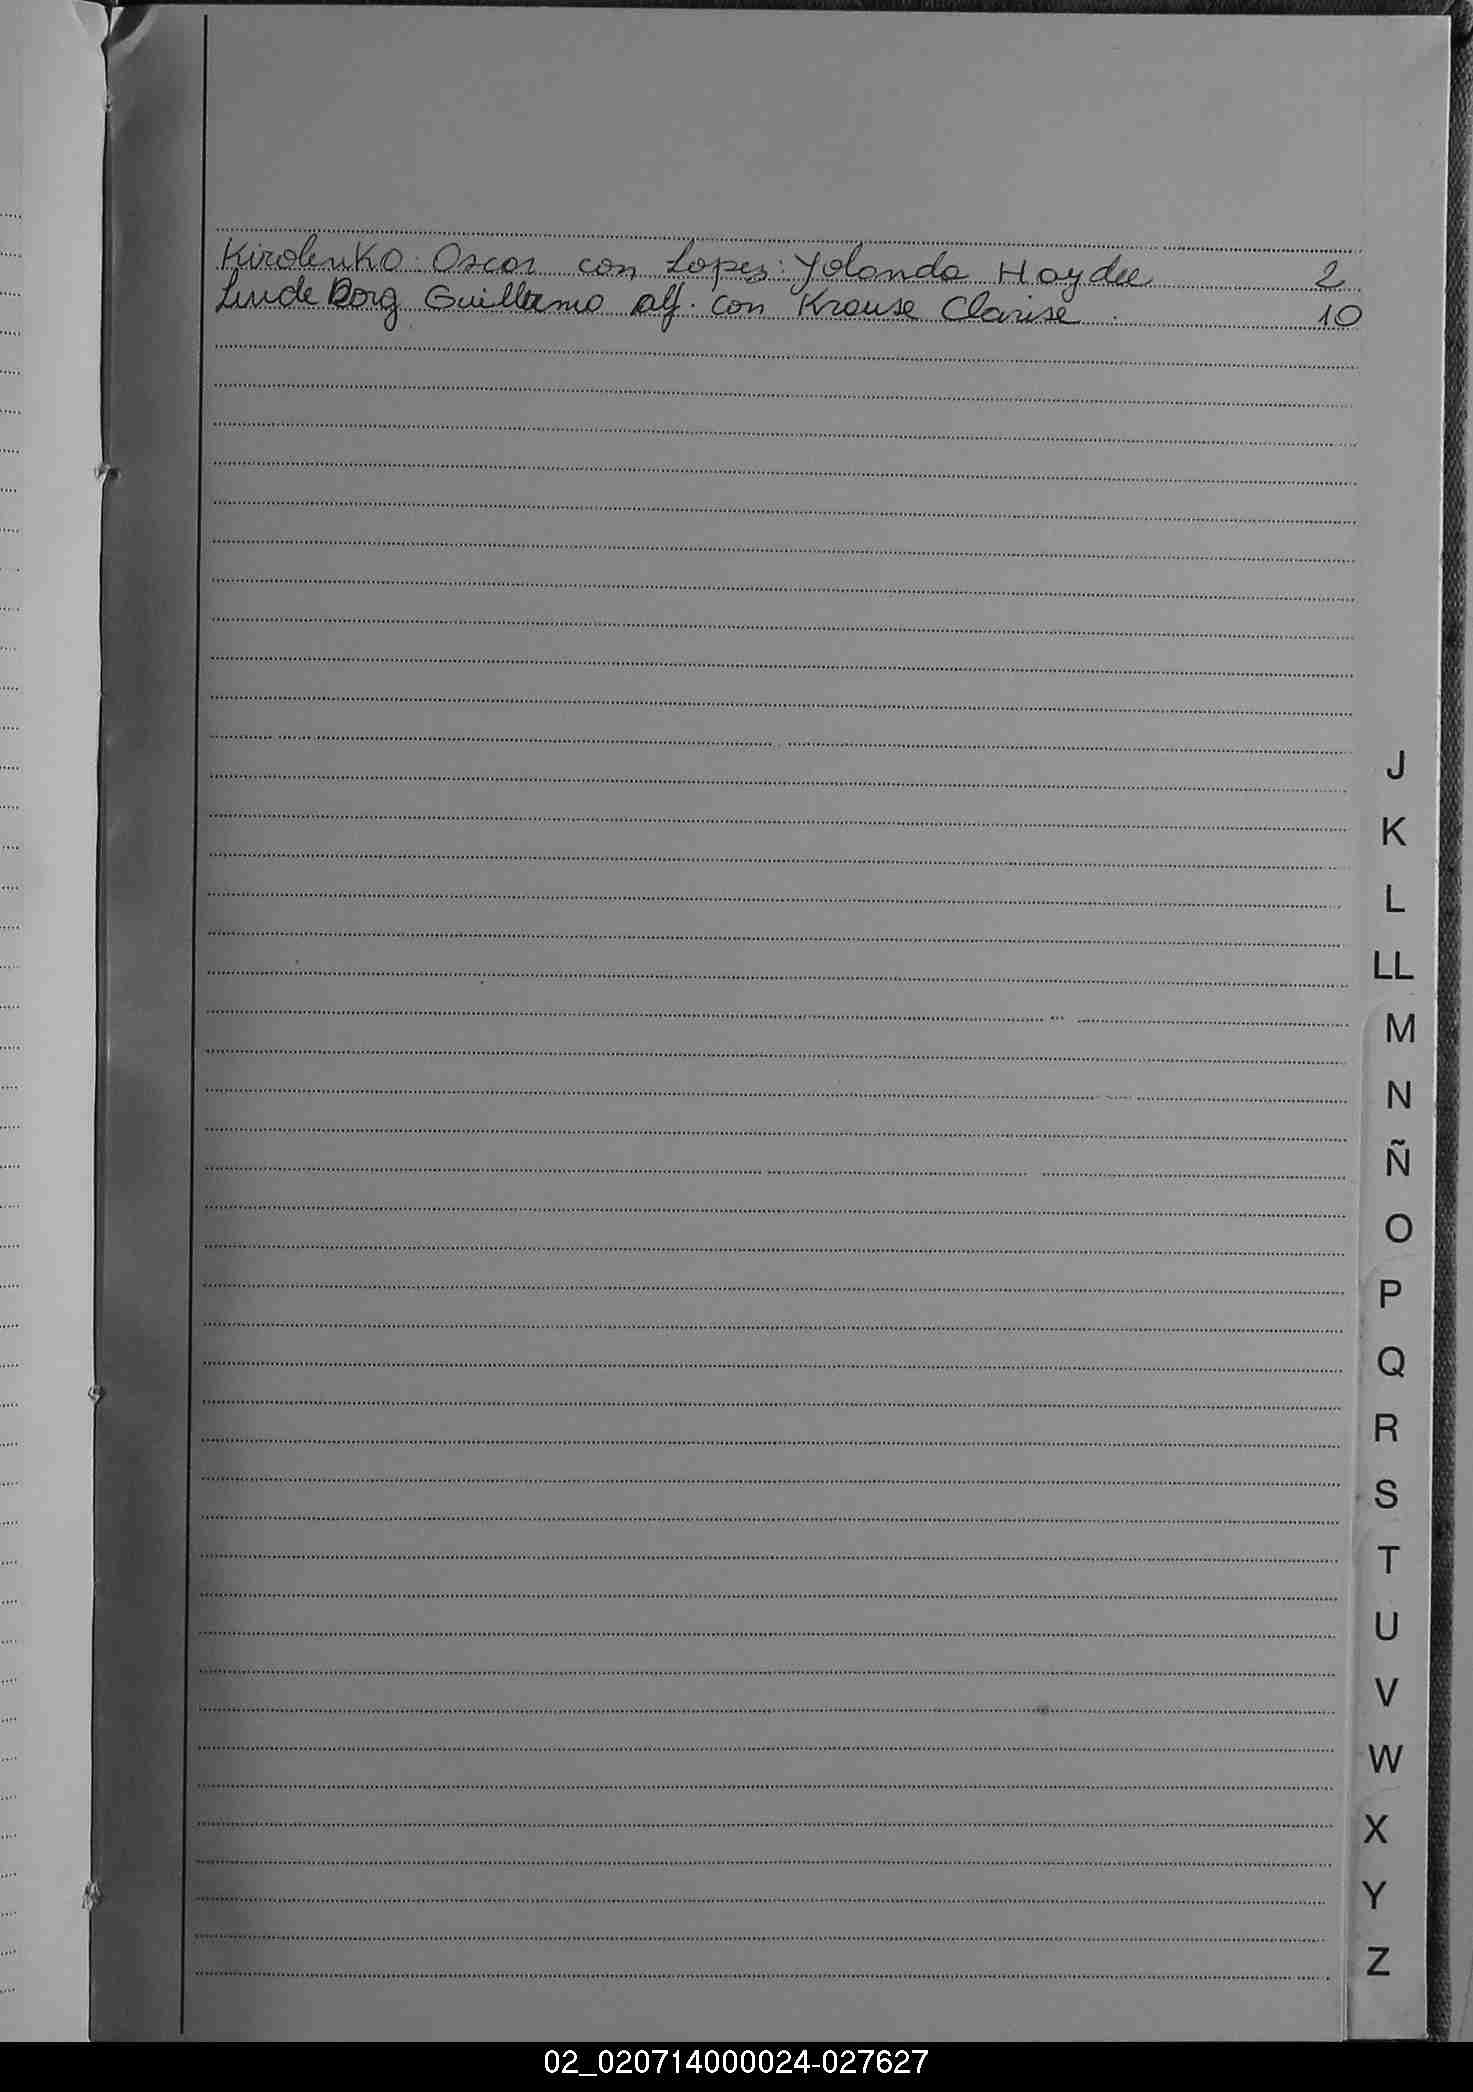 Kirolenko Oscar con Lopez: Yolanda Haydee 2
Linde Borg Guillermo Alf. con Krause Clarise 10
J
K
L
LL
M
N
Ñ
O
P
Q
R
S
T
U
V
W
X
Y
Z
02_020714000024-027627